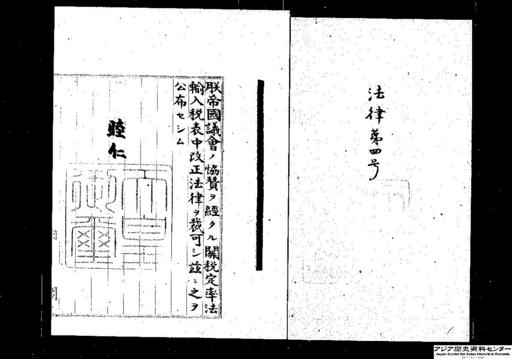 法律第四号
朕帝國議會ノ協賛ヲ經タル關税定率法
輸入税表中改正法律ヲ裁可シ茲ニ之ヲ
公布セシム
睦仁
アジア歴史資料センター
Japan Center for Asian Historical Records